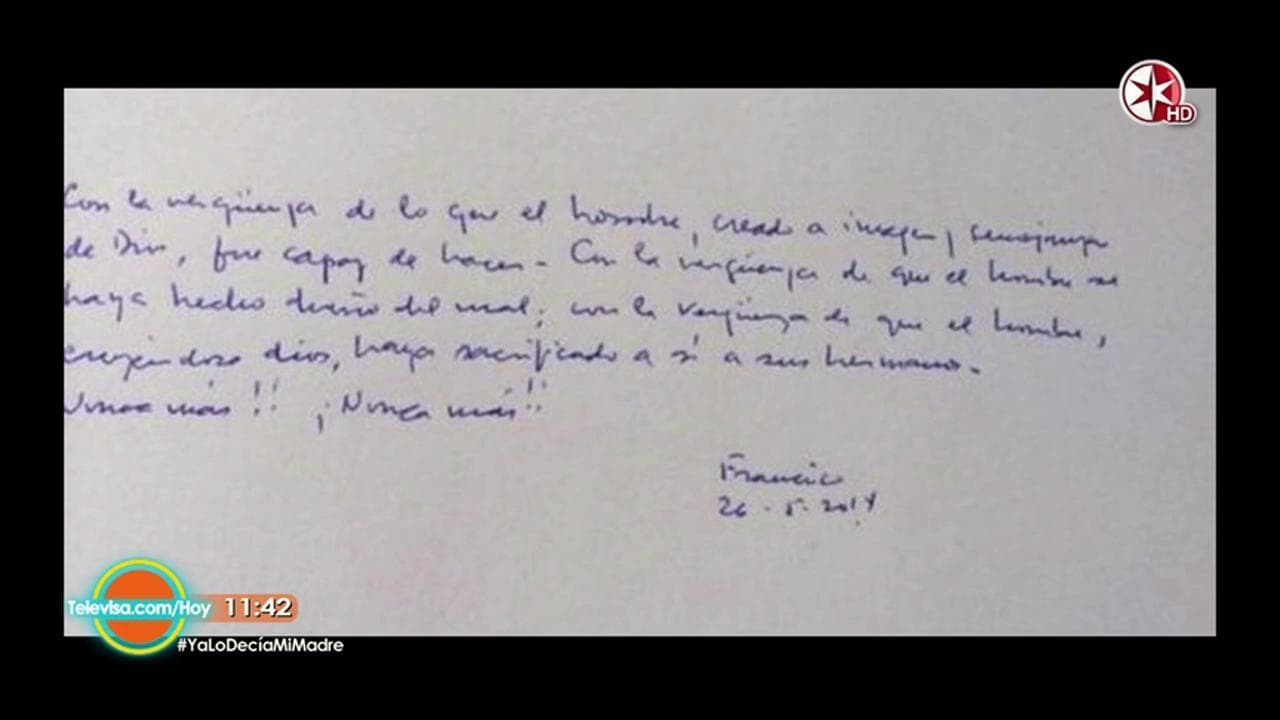 HD
Con la vergüenza de lo que el hombre, creado a imagen y semejanza
de Dios, fue capaz de hacer. Con la vergüenza de que el hombre se
haya hecho dueño del mal; con la vergüenza de que el hombre,
creyéndose dios, haya sacrificado a sí a sus hermanos.
Nunca más!! ¡Nunca más!!
Francisco
26-5-2014
Televisa.com/Hoy 11:42
#YaLoDecíaMiMadre